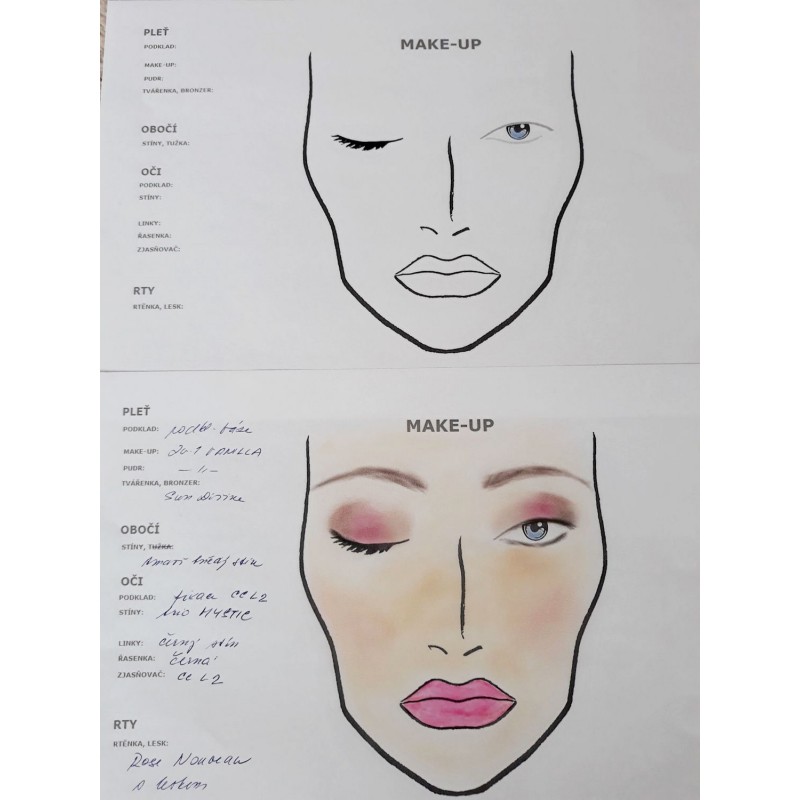 PLEŤ
MAKE-UP
PODKLAD:
MAKE-UP:
PUDR:
TVÁŘENKA, BRONZER:
OBOČÍ
STÍNY, TUŽKA:
OČI
PODKLAD:
STÍNY:
LINKY:
ŘASENKA:
ZJASŇOVAČ:
RTY
RTĚNKA, LESK:
PLEŤ
MAKE-UP
PODKLAD: báze
MAKE-UP: 2v1 VANILLA
PUDR: —"—
TVÁŘENKA, BRONZER:
Sun Divine
OBOČÍ
STÍNY, TUŽKA:
hnědý stín
OČI
PODKLAD: CC L2
STÍNY: trio MYSTIC
LINKY: černý stín
ŘASENKA: černá
ZJASŇOVAČ: CC L2
RTY
RTĚNKA, LESK:
Rose Nouveau
s leskem